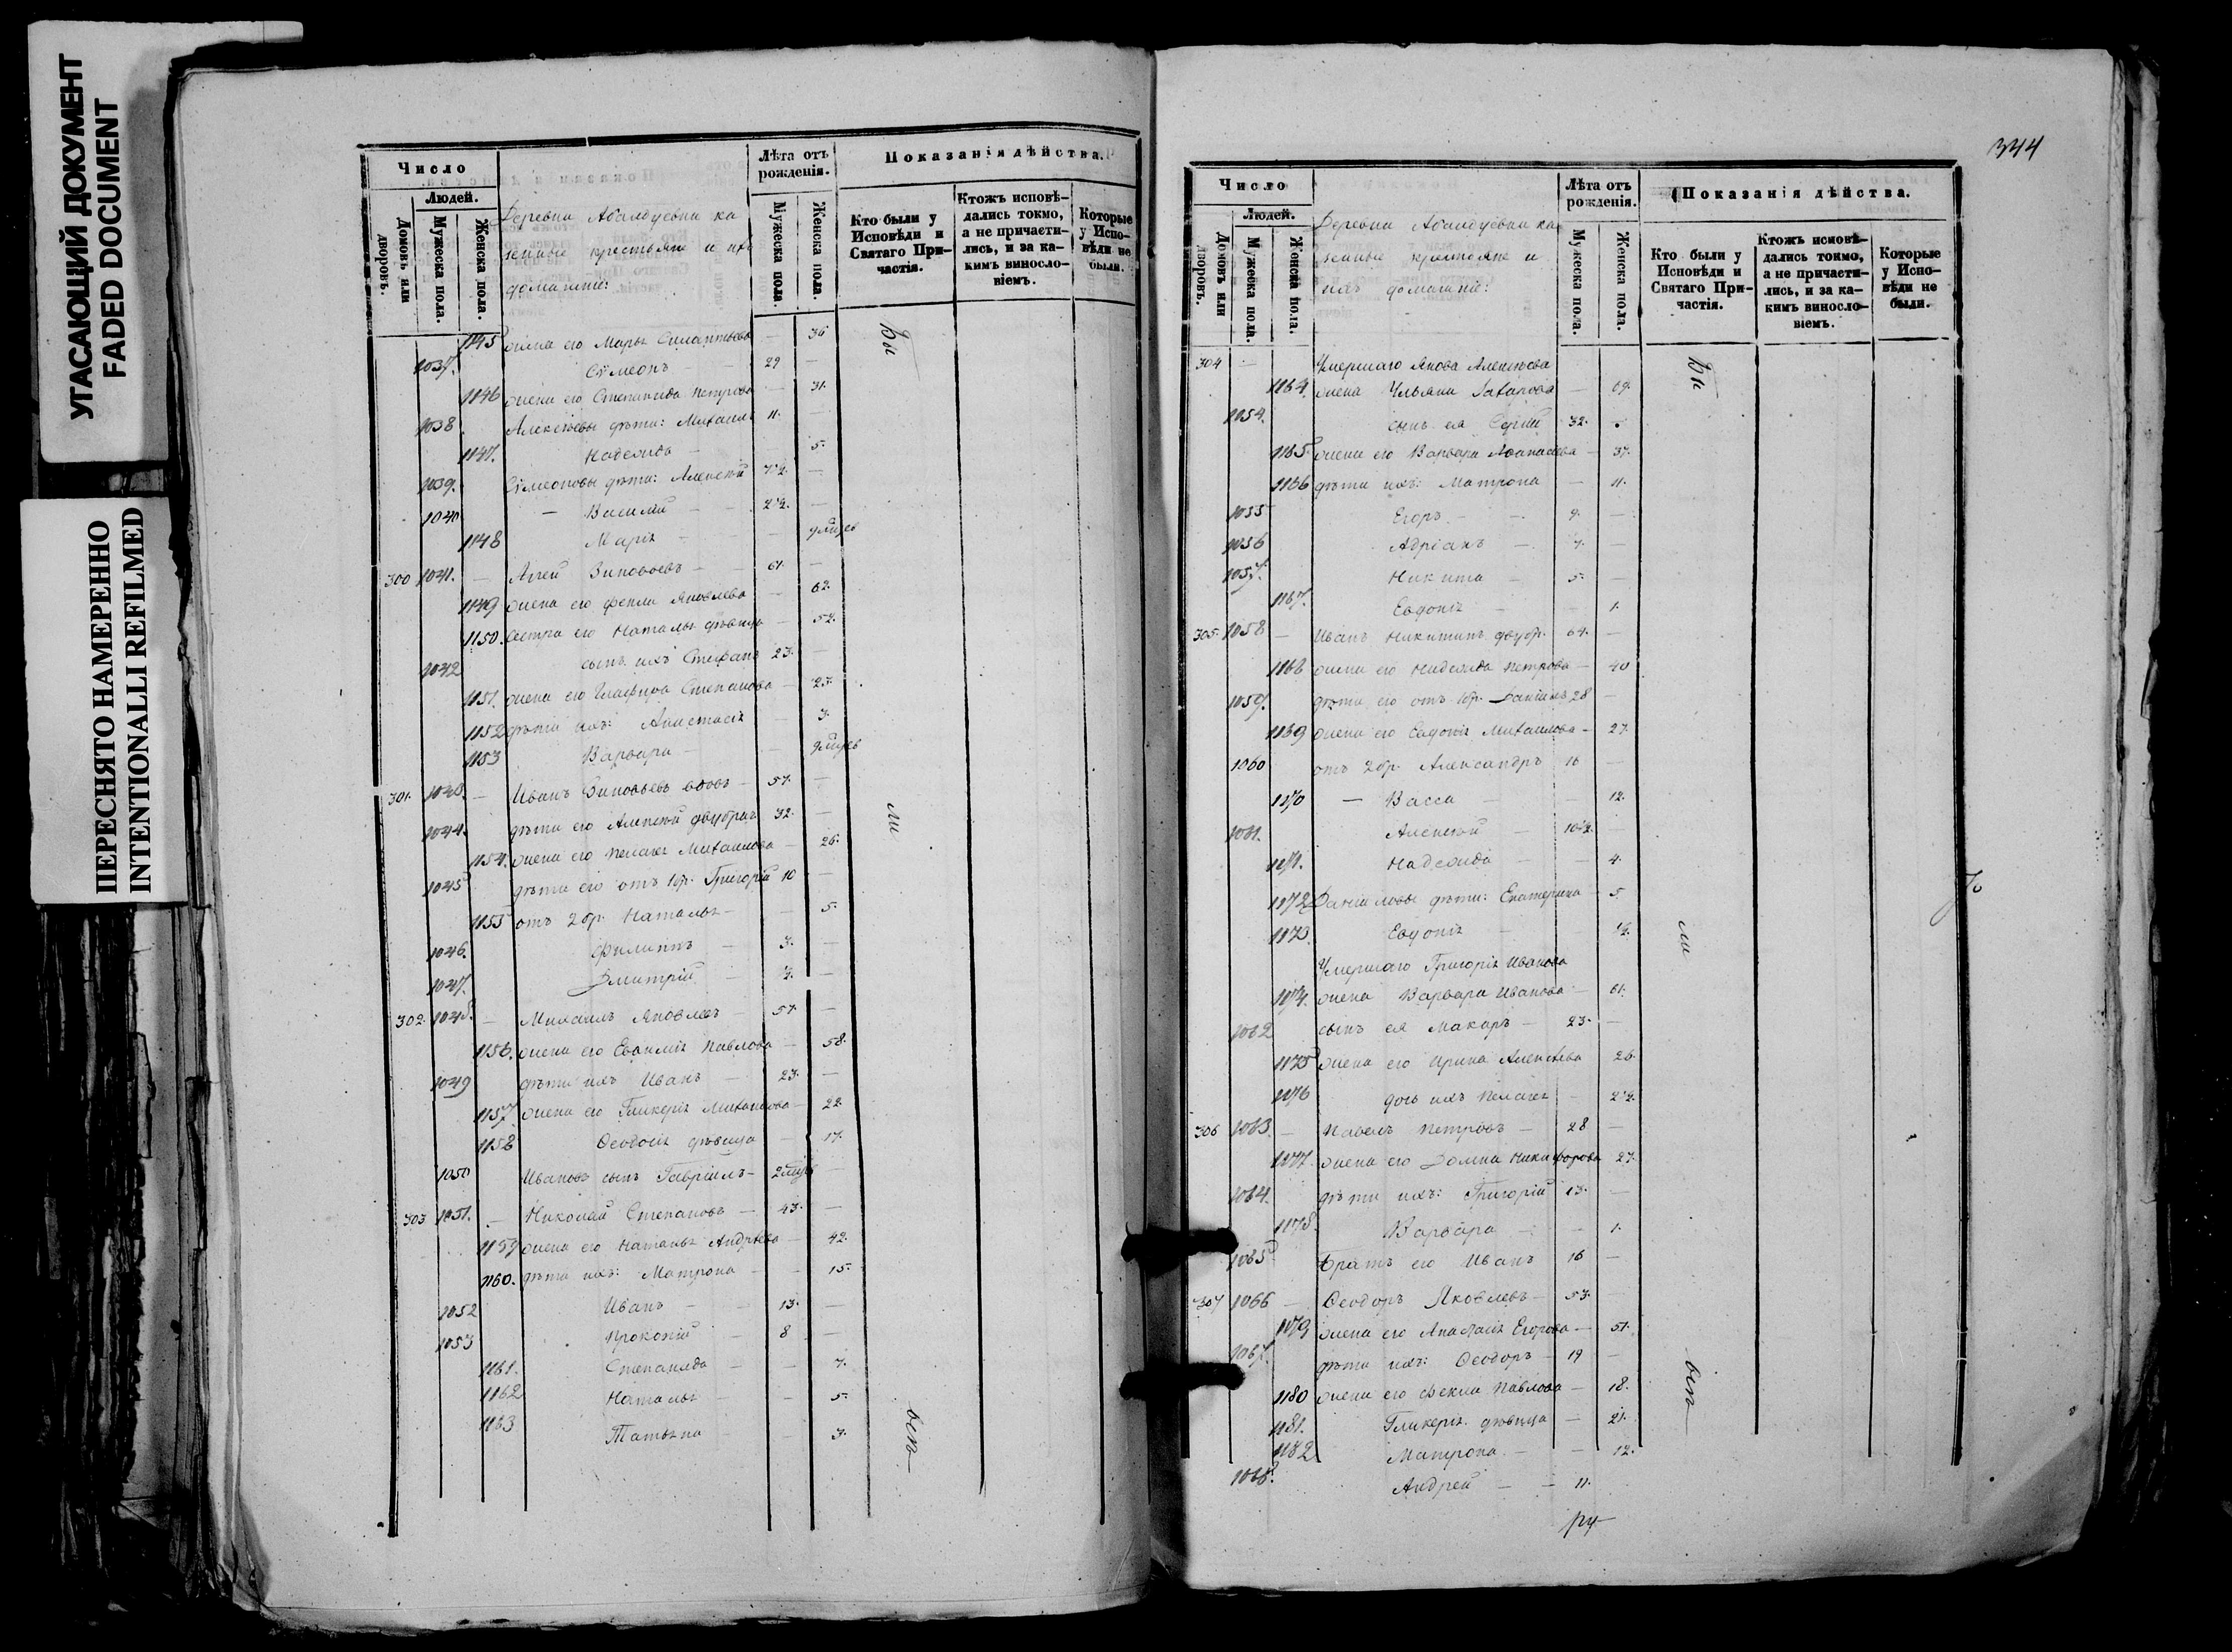 УГАСАЮЩИЙ ДОКУМЕНТ
FADED DOCUMENT
ПЕРЕСНЯТО НАМЕРЕННО
INTENTIONALLI REFILMED
Число
Людей.
Домовъ или дворовъ.
Мужеска пола.
Женска пола.
Деревни Абалдуевки ка
зенные крестьяне и ихъ
домашніе:
Лѣта отъ рожденія.
Мужеска пола.
Женска пола.
Показанія дѣйства.
Кто были у Исповѣди и Святаго Причастія.
Ктожъ исповѣдались токмо, а не причастились, и за какимъ винословіемъ.
Которые у Исповѣди не были.
1145 жена его Марья Силантьева — 36
1037. Сѵмеонъ — 29 —
1146 жена его Степанида Петрова — 31.
1038 Алексѣевы дѣти: Михаилъ 11. —
1147. Надежда — 5.
1039. Сѵмеоновы дѣти: Алексѣй 7½ —
1040 — Василій — 2½. —
1148 Марія —
300 1041. — Аггей Зиновьевъ — 61. —
1149 жена его Фекла Яковлева — 62.
1150. Сестра его Наталья дѣвица — 52.
1042 сынъ ихъ Стефанъ 23. —
1151. жена его Глафира Степанова — 25.
1152 дѣти ихъ: Анастасія — 3.
1153 Варвара —
301. 1043. — Иванъ Зиновьевъ вдовъ — 57. —
1044. дѣти его Алексѣй двубрач 32. —
1154. жена его Пелагея Михаилова — 26.
1045 дѣти его отъ 1бр. Григорій 10 —
1155 отъ 2бр. Наталья — 5.
1046. Филиппъ — 3. —
1047. Дмитрій — ½. —
302. 1048. — Михаилъ Яковлевъ — 57. —
1156. жена его Евѳимія Павлова — 58.
1049 дѣти ихъ Иванъ — 23. —
1157. жена его Гликерія Михаилова — 22.
1158 Ѳеодосія дѣвица — 17.
1050 Ивановъ сынъ Гавріилъ —
303 1051. — Николай Степановъ — 43. —
1159 жена его Наталья Андрѣева — 42.
1160. дѣти ихъ: Матрона — 15.
1052 Иванъ — 13. —
1053 Прокопій — 8 —
1161. Степанида — 7.
1162 Наталья — 5.
1163 Татьяна — 3.
Бы
ли
всѣ
344
Число
Людей.
Домовъ или дворовъ.
Мужеска пола.
Женска пола.
Деревни Абалдуевки ка
зенные крестьяне и
ихъ домашніе:
Лѣта отъ рожденія.
Мужеска пола.
Женска пола.
Показанія дѣйства.
Кто были у Исповѣди и Святаго Причастія.
Ктожъ исповѣдались токмо, а не причастились, и за какимъ винословіемъ.
Которые у Исповѣди не были.
304 — Умершаго Якова Алексѣева
1164. жена Ульяна Захарова — 69.
1054. сынъ ея Сергій 32.
1165. жена его Варвара Аѳанасіева — 37.
1166 дѣти ихъ: Матрона — 11.
1055 Егоръ — 9. —
1056 Адріанъ — 7. —
1057. Никита — 5. —
1167. Евдокія — 1.
305. 1058 — Иванъ Никитинъ двубр. 64. —
1168 жена его Надежда Петрова — 40
1059. дѣти его отъ 1бр. Даніилъ 28 —
1169 жена его Евдокія Михаилова — 27.
1060 отъ 2бр. Александръ 16 —
1170 — Васса — 12.
1061. Алексѣй — 10½. —
1171. Надежда — 4.
1172 Данііловы дѣти: Екатерина — 5
1173. Евдокія — ½.
Умершаго Григорія Иванова
1174. жена Варвара Иванова — 61.
1062 сынъ ея Макаръ — 23. —
1175 жена его Ирина Алексѣева 26.
1176 дочь ихъ Пелагея — 2½.
306 1063. — Павелъ Петровъ — 28 —
1177. жена его Домна Никифорова 27.
1064. дѣти ихъ: Григорій 13. —
1178. Варвара — 1.
1065 Братъ его Иванъ 16 —
307 1066 — Ѳеодоръ Яковлевъ — 53. —
1179 жена его Анастасія Егорова — 51.
1067. дѣти ихъ: Ѳеодоръ — 19 —
1180 жена его Фекла Павлова — 18.
1181. Гликерія дѣвица — 21.
1182 Матрона — 12.
1068. Андрей — 11.
Бы
ли
всѣ